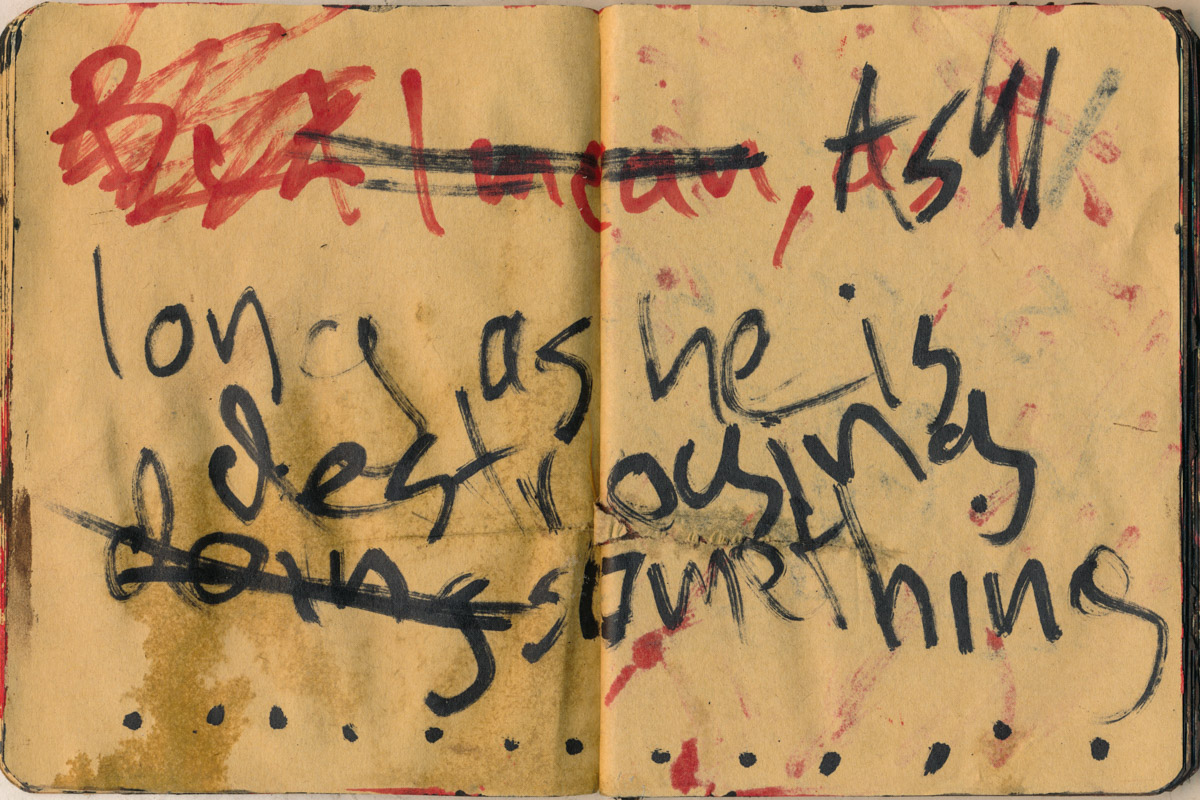 But I mean, As
long as he is
destroying
doing something
..............